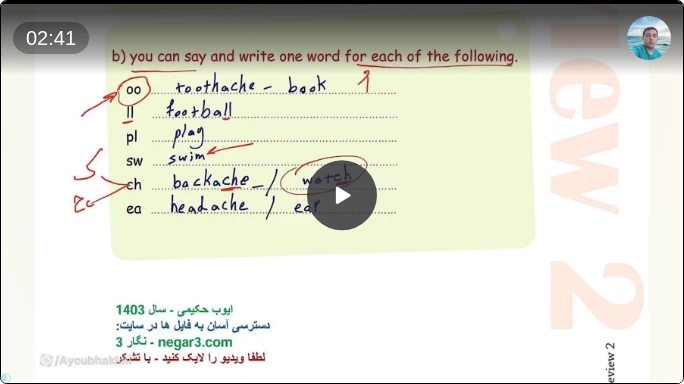 02:41
b) you can say and write one word for each of the following.
oo toothache - book
ll football
pl play
sw swim
ch backache - / watch
ea headache / ear
ایوب حکیمی - سال 1403
دسترسی آسان به فایل ها در سایت:
negar3.com - نگار 3
لطفا ویدیو را لایک کنید - با تشکر
view 2
eview 2